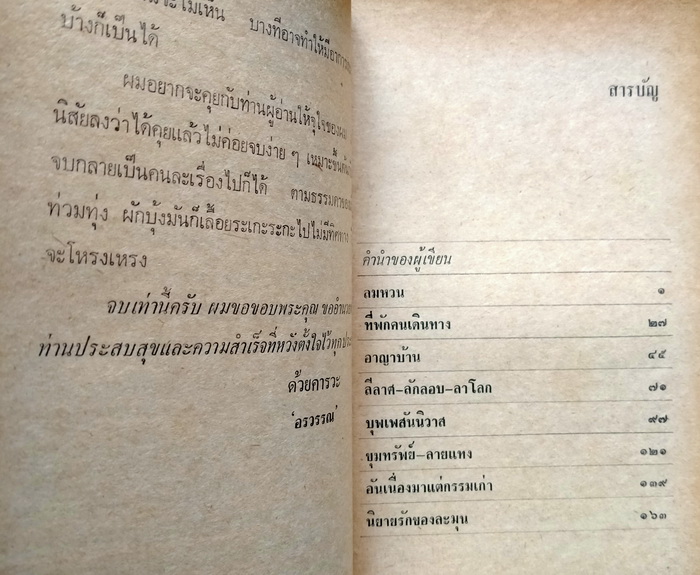 บางทีอาจทำให้มีอาการ
บ้างก็เป็นได้
ผมอยากจะคุยกับท่านผู้อ่านให้จุใจของผม
นิสัยลงว่าได้คุยแล้วไม่ค่อยจบง่าย ๆ เหมาะขึ้นต้น
จบกลายเป็นคนละเรื่องไปก็ได้ ตามธรรมดาของ
ท่วมทุ่ง ผักบุ้งมันก็เลื้อยระเกะระกะไปไม่มีทิศทาง
จะโหรงเหรง
จบเท่านี้ครับ ผมขอขอบพระคุณ ขออำนวย
ท่านประสบสุขและความสำเร็จที่หวังตั้งใจไว้ทุกประ
ด้วยคารวะ
'อรวรรณ'
สารบัญ
คำนำของผู้เขียน
ลมหวน ๑
ที่พักคนเดินทาง ๒๗
อาญาบ้าน ๔๕
ลีลาศ-ลักลอบ-ลาโลก ๗๑
บุพเพสันนิวาส ๙๗
ขุมทรัพย์-ลายแทง ๑๒๑
อันเนื่องมาแต่กรรมเก่า ๑๓๙
นิยายรักของละมุน ๑๖๓